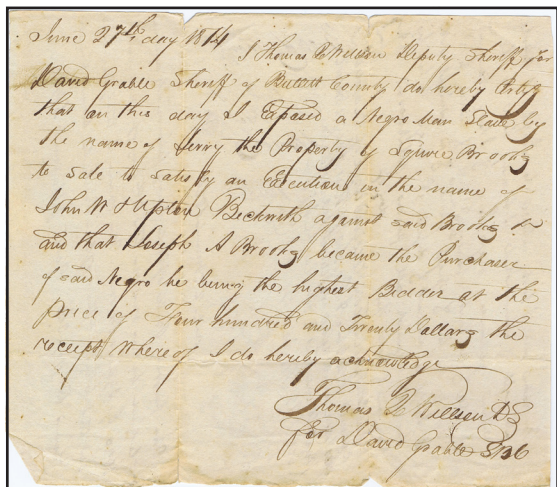 June 27th day 1814
I Thomas Q Wilson Deputy Sheriff for
David Grable Sheriff of Bullitt County do hereby Certify
that on this day I Exposed a Negro Man Slave by
the name of Jerry the Property of Brooks
to sale to satisfy an Execution in the name of
John W Beckwith against said Brooks &
and that Joseph A Brooks became the Purchaser
of said Negro he being the highest Bidder at the
price of Four hundred and Twenty Dollars the
receipt Whereof I do hereby acknowledge
Thomas Q Willson DS
for David Grable SBC